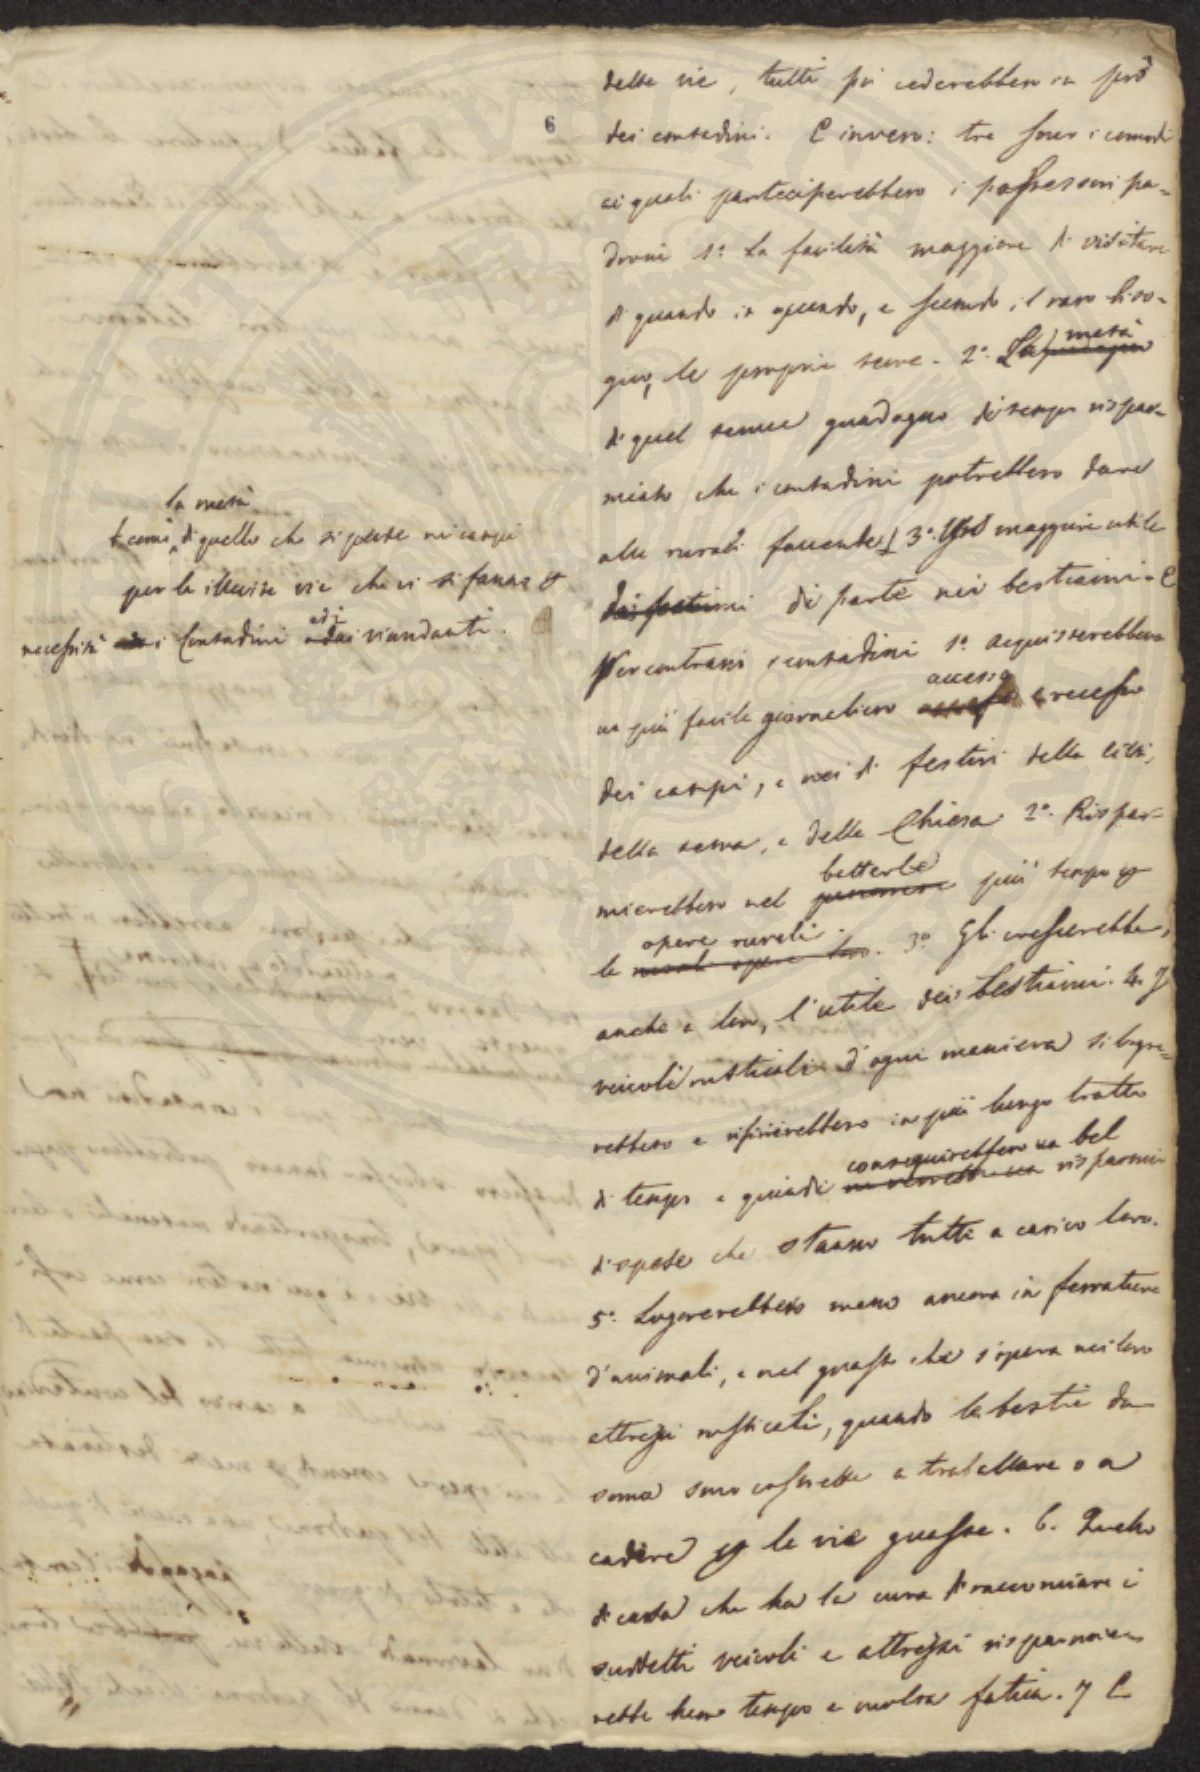 6
delle vie, tutti poi cederebbero in prò
dei contadini. E invero: tre sono i comodi
ai quali parteciperebbero i possessori pa-
droni 1.º La facilità maggiore di visitare
di quando in quando, e secondo il raro biso-
gno, le proprie terre. 2.º La metà
di quel tenue guadagno di tempo rispar-
miato che i contadini potrebbero dare
alle rurali faccende 3.º maggiore utile
di parte nei bestiami. E
Per contrario i contadini 1.º acquisterebbero
un più facile giornaliero accesso e recesso
dei campi, e nei dì festivi della città,
della terra, e della Chiesa 2.º Rispar-
mierebbero nel batterle più tempo p
le opere rurali. 3.º Gli crescerebbe,
anche a loro, l'utile dei bestiami. 4. I
veicoli rusticali d'ogni maniera si logre-
rebbero e rifinirebbero in più lungo tratto
di tempo e quindi conseguirebbero un bel risparmio
di spese che stanno tutte a carico loro.
5.º Logorerebbero meno ancora in ferrature
d'animali, e nel guasto che s'opera nei loro
attrezzi rusticali, quando le bestie da
soma sono costrette a traballare o a
cadere p le vie guaste. 6. Quello
di casa che ha la cura di racconciare i
suddetti veicoli e attrezzi risparmie-
rebbe bene tempo e molta fatica. 7 E
la metà
come di quello che si perde nei campi
per le illecite vie che vi si fanno p
necessità i Contadini ed i viandanti.